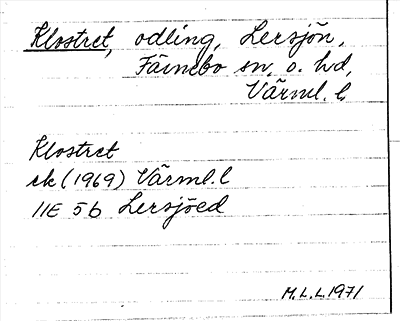 Klostret, odling, Lersjön,
Färnebo sn. o. hd,
Värml. l.
Klostret
ek (1969) Värml. l
11E 5b Lersjöed
M.L.L. 1971